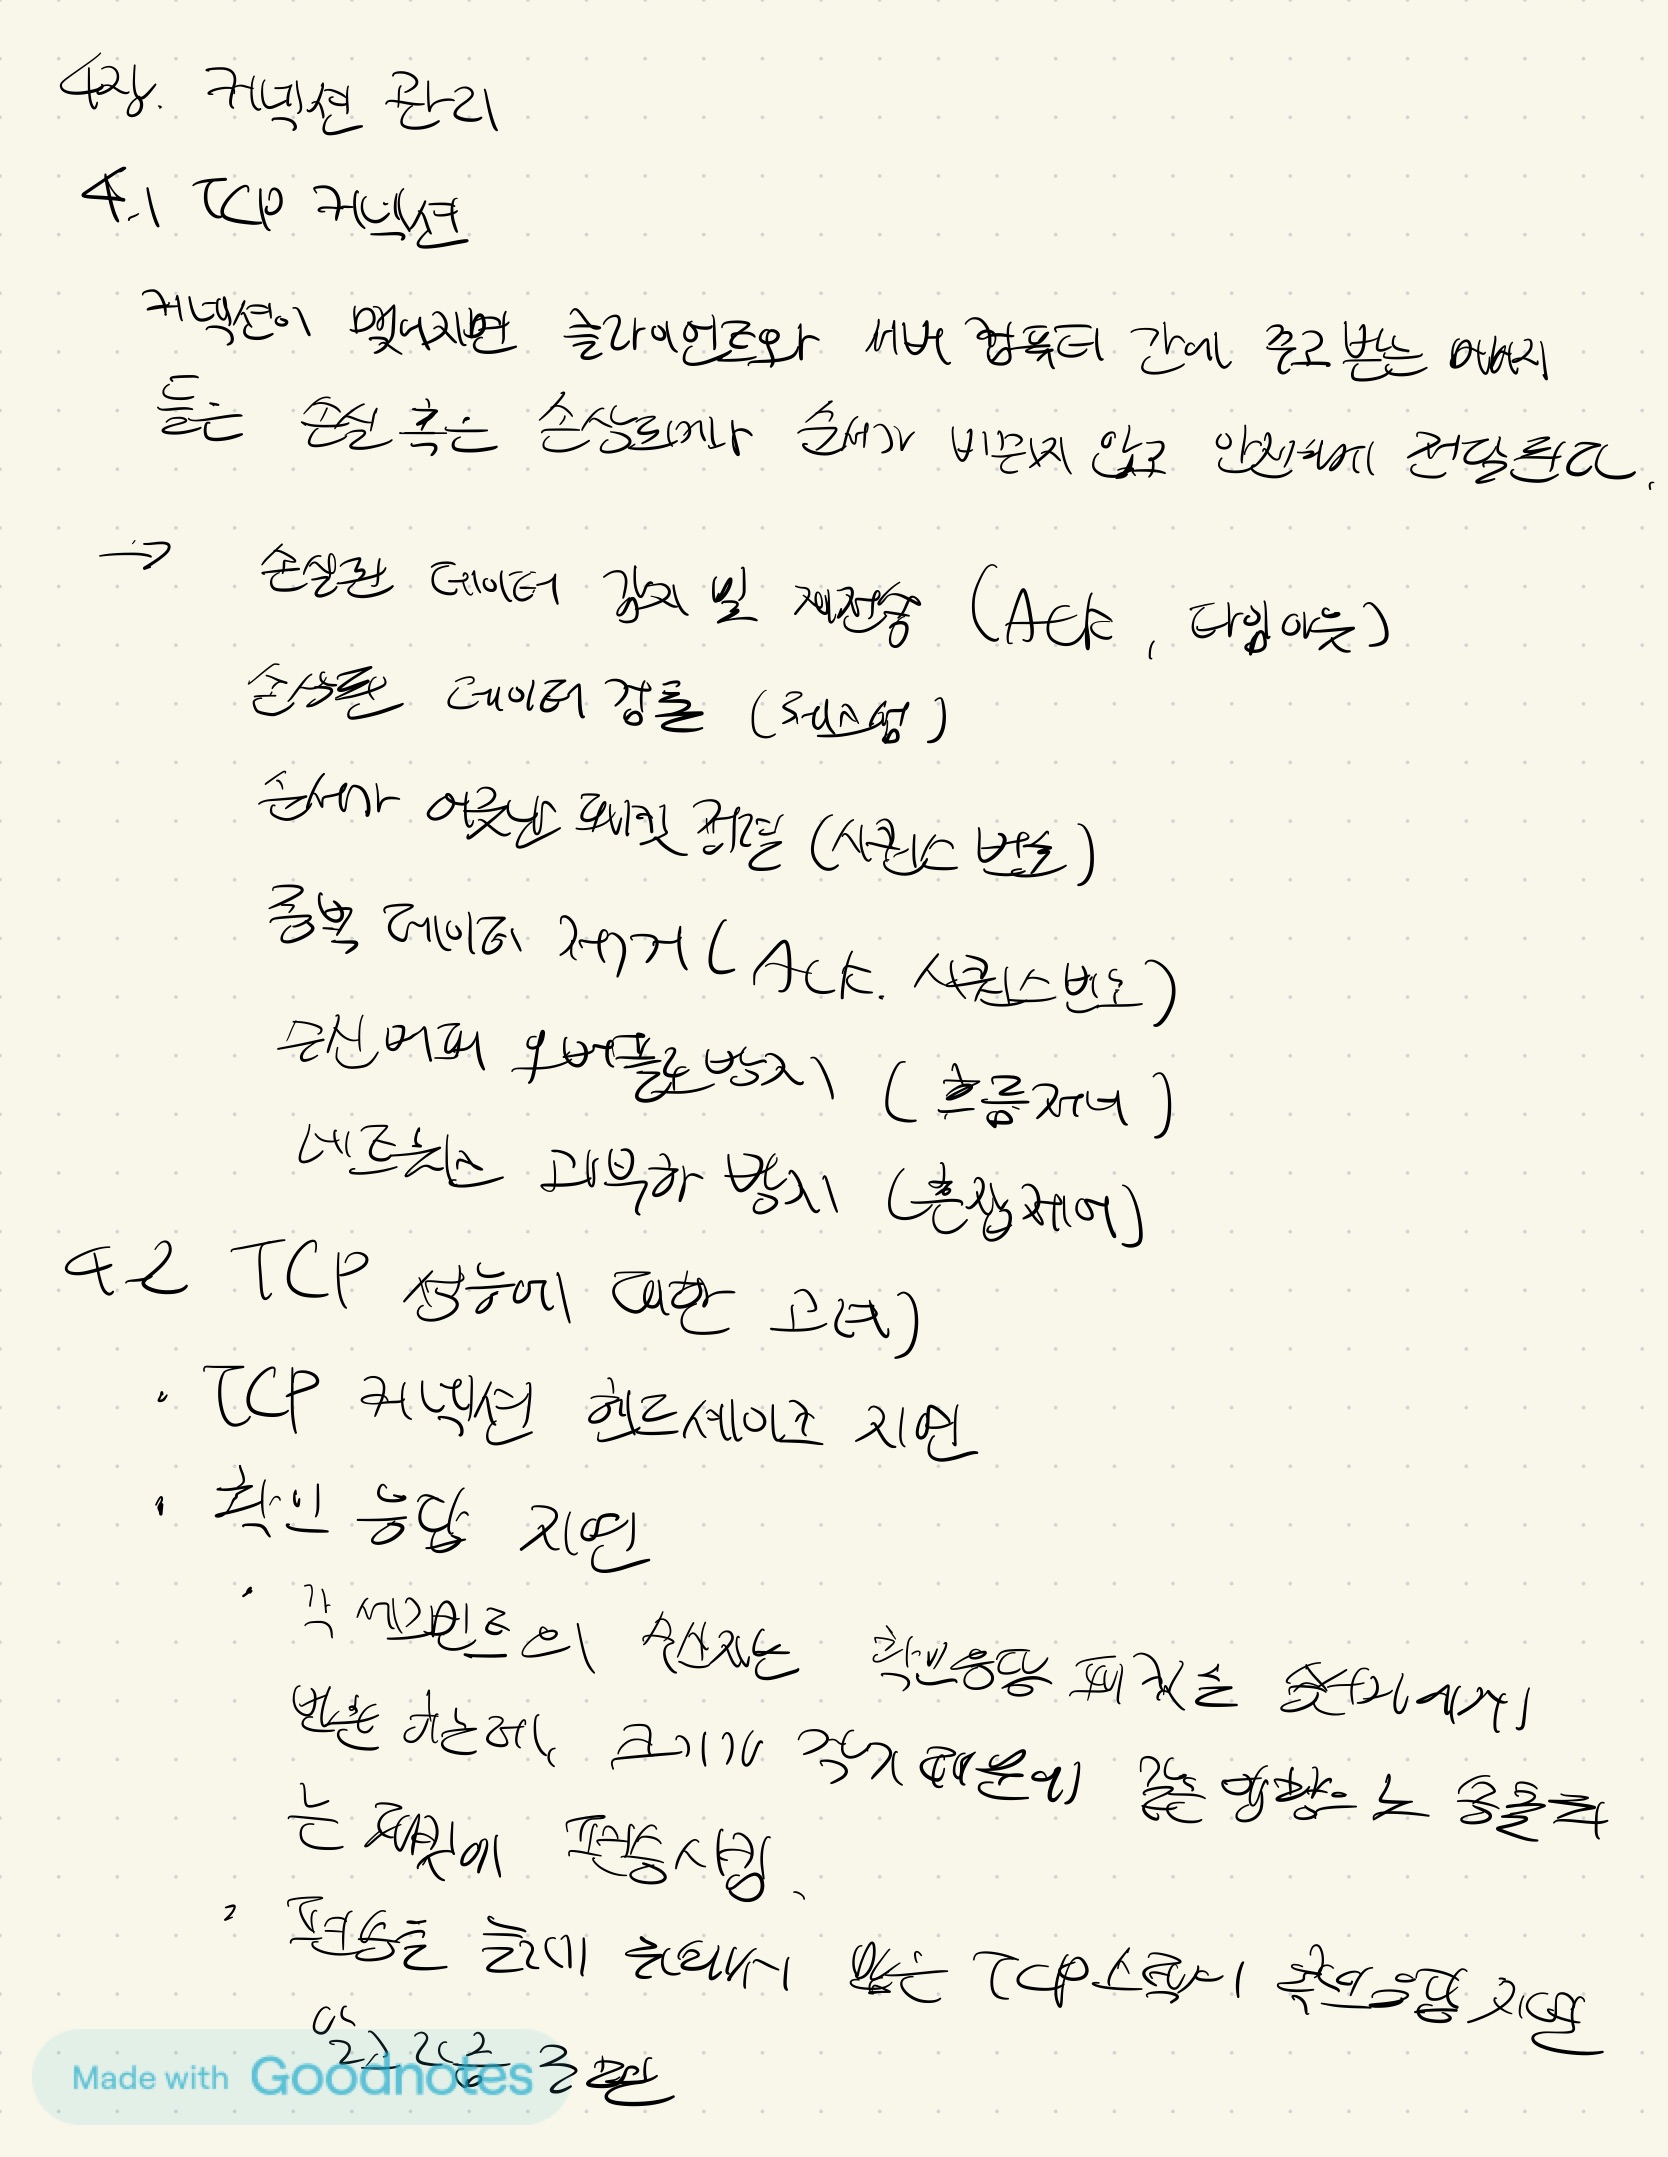 4장. 커넥션 관리
4.1 TCP 커넥션
커넥션이 맺어지면 클라이언트와 서버 컴퓨터 간에 주고 받는 메시지
들은 손실 혹은 손상되거나 순서가 바뀌지 않고 안전하게 전달된다.
→ 손실된 데이터 감지 및 재전송 (Ack, 타임아웃)
손상된 데이터 검출 (체크섬)
순서가 어긋난 패킷 정렬 (시퀀스 번호)
중복 데이터 제거 (Ack. 시퀀스 번호)
수신 버퍼 오버플로 방지 (흐름제어)
네트워크 과부하 방지 (혼잡제어)
4.2 TCP 성능에 대한 고려
· TCP 커넥션 핸드셰이크 지연
· 확인 응답 지연
· 각 세그먼트의 수신자는 확인응답 패킷을 송신자에게
반환 하는데, 크기가 작기 때문에 같은 방향으로 송출되
는 패킷에 편승시킴.
· 편승을 늘리기 위해서 많은 TCP 스택에서 확인응답 지연
알고리즘 구현
Made with Goodnotes